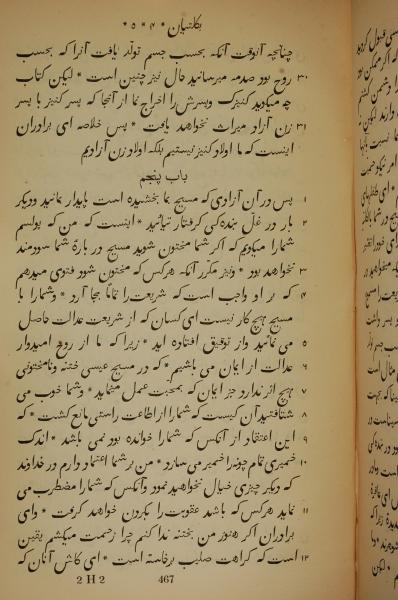 بکلتیان * ۴ * ۵ *
چنانچه آنوقت آنکه بحسب جسم تولد یافت آنرا که بحسب
۳۰ روح بود صدمه میرسانید حال نیز چنین است * لیکن کتاب
چه میگوید کنیزک و پسرش را اخراج نما از آنجا که پسر کنیز با پسر
۳۱ زن آزاد میراث نخواهد یافت * پس خلاصه ای برادران
اینست که ما اولاد کنیز نیستیم بلکه اولاد زن آزادیم
باب پنجم
۱ پس در آن آزادی که مسیح بما بخشیده است پایدار بمانید و دیگر
۲ بار در غل بندگی گرفتار نباشید * اینست که من که پولسم
شمارا میگویم که اگر شما مختون شوید مسیح در بارۀ شما سودمند
۳ نخواهد بود * و نیز مکرر آنکه هرکس که مختون شود فتوی میدهم
۴ که بر او واجب است که شریعت را تماماً بجا آرد * و شما را با
مسیح هیچ کار نیست ای کسان که از شریعت عدالت حاصل
۵ می نمائید و از توفیق افتاده اید * زیرا که ما از روح امیدوار
۶ عدالت از ایمان می باشیم * که در مسیح عیسی ختنه و نامختونی
۷ هیچ اثر ندارد جز ایمان که بمحبت عمل مینماید * و شما خوب می
۸ شتافتید آن کیست که شما را از اطاعت راستی مانع گشت * که
۹ این اعتقاد از آنکس که شما را خوانده بود نمی باشد * اندک
۱۰ خمیری تمام چونه را خمیر می سازد * من بر شما اعتماد دارم در خداوند
که دیگر چیزی خیال نخواهید نمود و آنکس که شما را مضطرب می
۱۱ نماید هرکس که باشد عقوبت را بگردن خواهد گرفت * و ای
برادران اگر هنوز من بختنه ندا کنم چرا زحمت میکشم یقین
۱۲ است که کراهت صلیب برخاسته است * ای کاش آنان که
2 H 2 467